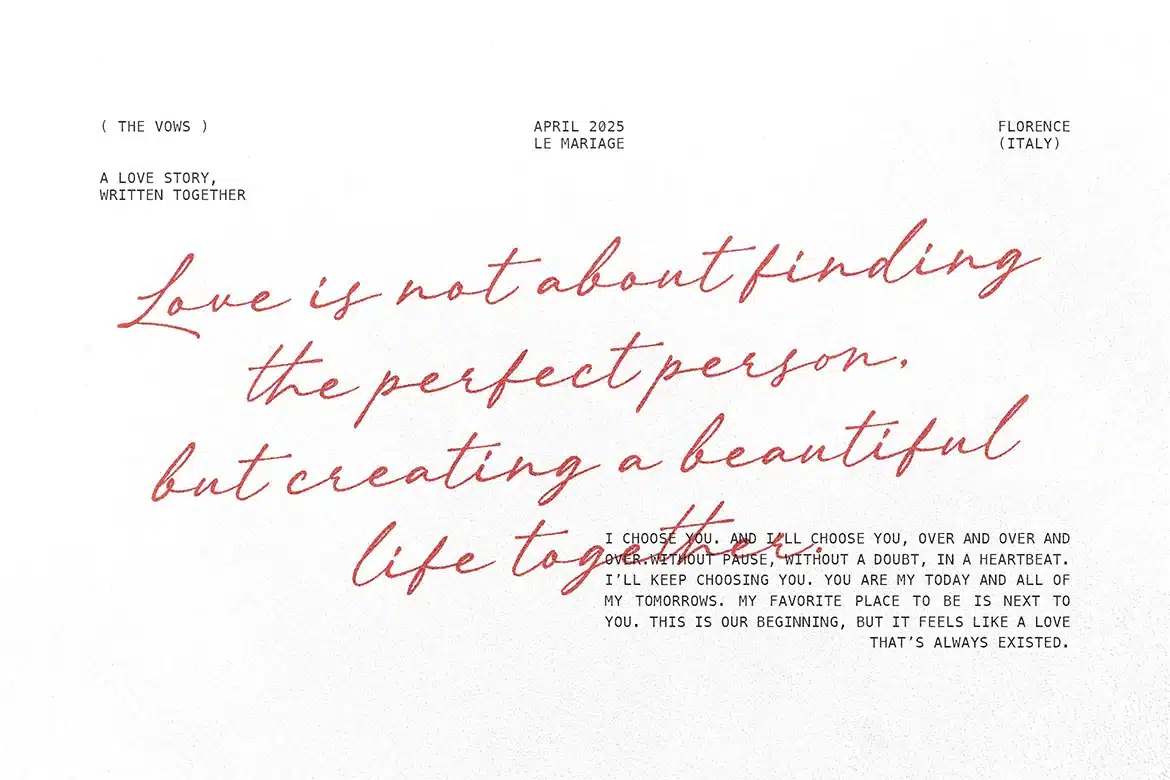 ( THE VOWS )
A LOVE STORY,
WRITTEN TOGETHER
APRIL 2025
LE MARIAGE
FLORENCE
(ITALY)
Love is not about finding
the perfect person.
but creating a beautiful
life together.
I CHOOSE YOU. AND I'LL CHOOSE YOU, OVER AND OVER AND
OVER.WITHOUT PAUSE, WITHOUT A DOUBT, IN A HEARTBEAT.
I'LL KEEP CHOOSING YOU. YOU ARE MY TODAY AND ALL OF
MY TOMORROWS. MY FAVORITE PLACE TO BE IS NEXT TO
YOU. THIS IS OUR BEGINNING, BUT IT FEELS LIKE A LOVE
THAT'S ALWAYS EXISTED.